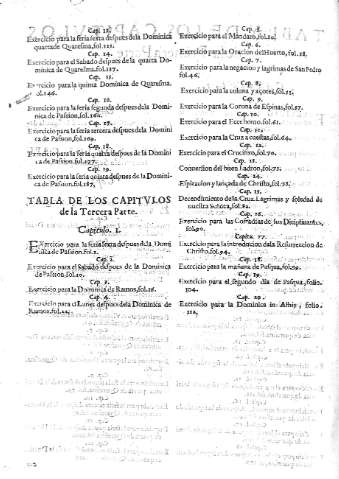 Cap. 13.
Exercicio para la feria sexta despues de la Dominica
quarta de Quaresma, fol. 121.
Cap. 14.
Exercicio para el Sabado despues de la quarta Do-
minica de Quaresma. fol. 127.
Cap. 15.
Exercicio para la quinta Dominica de Quaresma.
fol. 146.
Cap. 16.
Exercicio para la feria segunda despues dela Domi-
nica de Passion, fol. 162.
Exercicio para la feria tercera despues dela Domini
ca de Passion, fol. 169.
Cap. 18.
Exercicio para la feria quarta despues de la Domini
ca de Passion, fol. 177.
Cap. 19.
Exercicio para la feria quinta despues de la Domini-
ca de Passion, fol. 187,
TABLA DE LOS CAPITVLOS
de la Tercera Parte.
Capitulo. 1.
Exercicio para la feria sexta despues de la Domi
nica de Passion, fol. 1.
Exercicio para el Sabado despues de la Dominica
de Passion, fol. 10.
Cap. 3.
Exercicio para la Dominica de Ramos, fol. 16.
Cap. 4.
Exercicio para el Lunes despues dela Dominica de
Ramos, fol. 22.
Cap. 5.
Exercicio para el Mandato, fol.
Cap. 6.
Exercicio para la Oracion del Huerto, fol. 38.
Cap. 7.
Exercicio para la negacion y lagrimas de San Pedro
fol. 46.
Cap. 8.
Exercicio para la coluna y açotes, fol. 52.
Cap. 9.
Exercicio para la Corona de Espinas, fol. 57.
Cap. 10.
Exercicio para el Eccehomo. fol. 61.
Cap. 11.
Exercicio para la Cruz a cuestas, fol. 64.
Cap. 12.
Exercicio para el Crucifixo, fol. 70.
Conuersion del buen Ladron, fol. 73.
Cap. 14.
Espiracion y lançada de Christo, fol. 78.
Cap. 15.
Decendimiento de la Cruz. Lagrimas y soledad de
nuestra Señora, fol. 82.
Cap. 16.
Exercicio para las Cofradias de los Disciplinantes,
fol. 90.
Capitu. 17.
Exercicio para la introducion dela Resurreccion de
Christo, fol. 94.
Cap. 18.
Exercicio para la mañana de Pasqua, fol. 99.
Cap. 19.
Exercicio para el segundo dia de Pasqua, folio.
104.
Cap. 20.
Exercicio para la Dominica in Albis, folio.
112,